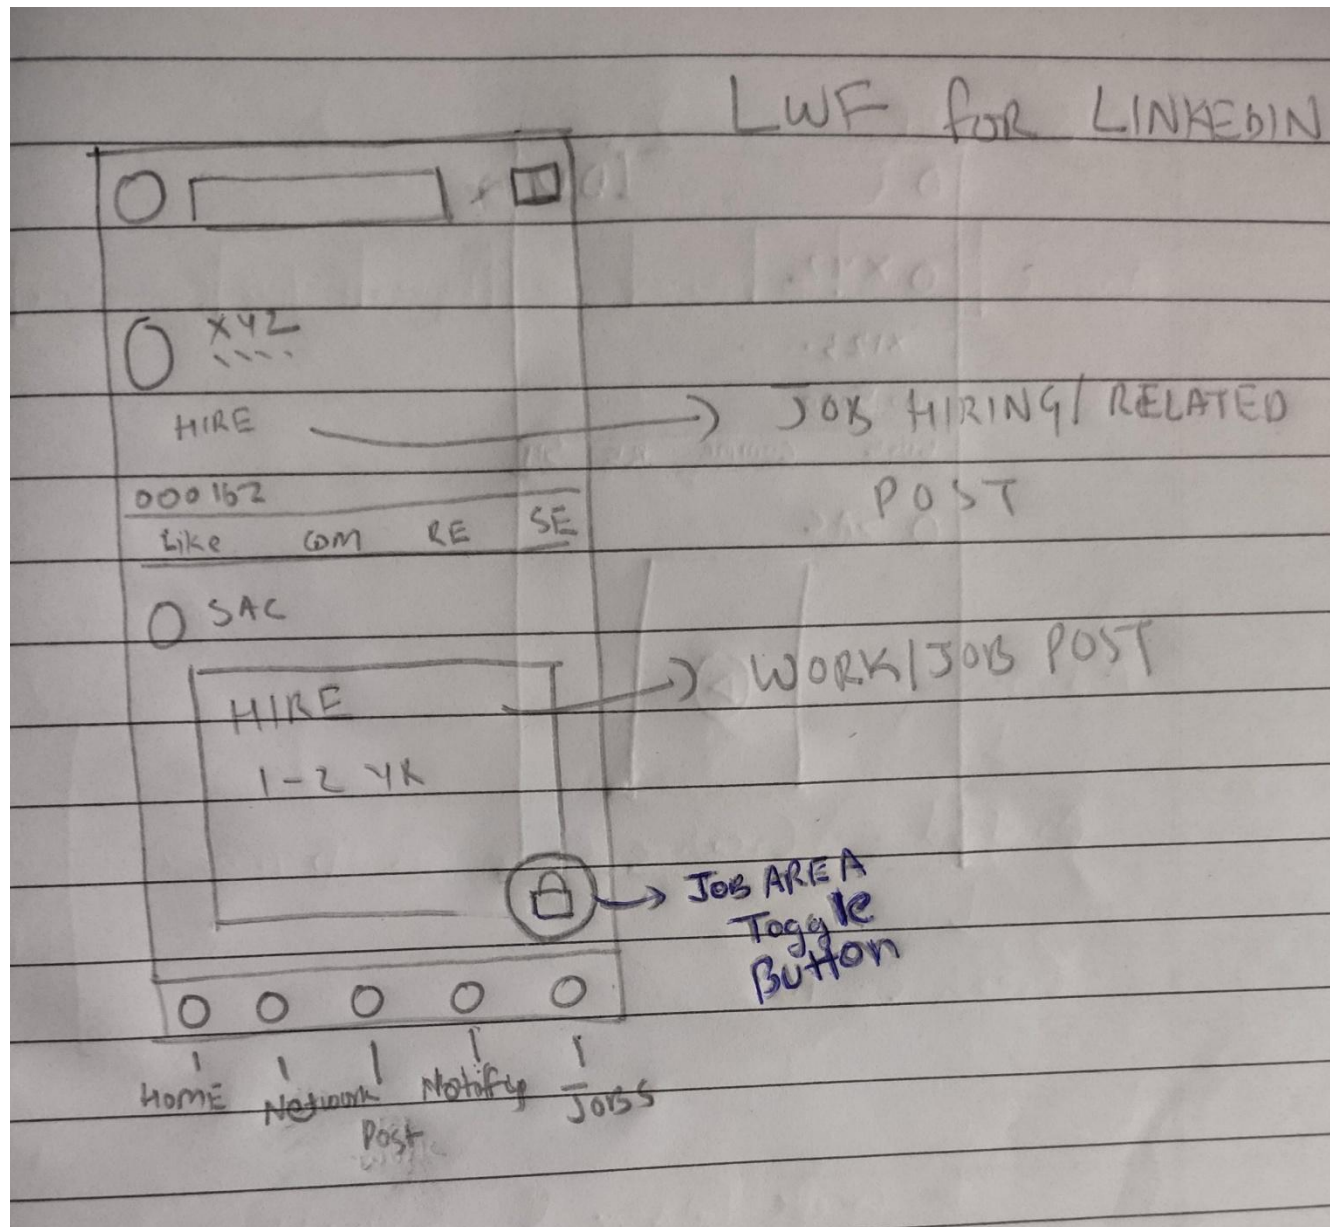 LWF FOR LINKEDIN
XYZ
HIRE
JOB HIRING/ RELATED
POST
000 162
Like COM RE SE
SAC
WORK/JOB POST
HIRE
1-2 YR
JOB AREA
Toggle
Button
HOME Network Post Notify JOBS